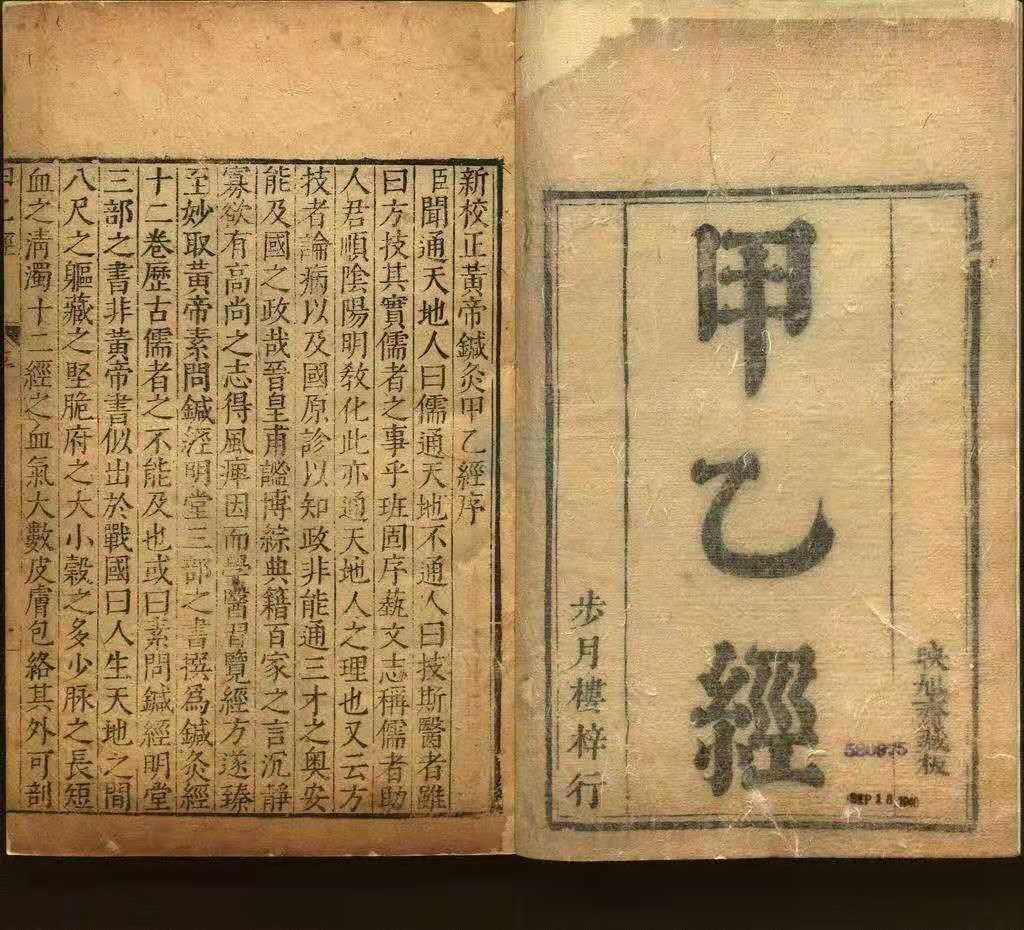 映旭齋藏板
甲乙經
步月樓梓行
580975
SEP 18 1940
新校正黃帝鍼灸甲乙經序
臣聞通天地人曰儒通天地不通人曰技斯醫者雖
曰方技其實儒者之事乎班固序蓺文志稱儒者助
人君順陰陽明敎化此亦通天地人之理也又云方
技者論病以及國原診以知政非能通三才之奧安
能及國之政哉晉皇甫謐博綜典籍百家之言沉靜
寡欲有高尚之志得風痺因而學醫習覽經方遂臻
至妙取黃帝素問鍼經明堂三部之書撰爲鍼灸經
十二卷歷古儒者之不能及也或曰素問鍼經明堂
三部之書非黃帝書似出於戰國曰人生天地之間
八尺之軀藏之堅脆府之大小穀之多少脉之長短
血之淸濁十二經之血氣大數皮膚包絡其外可剖
甲乙經